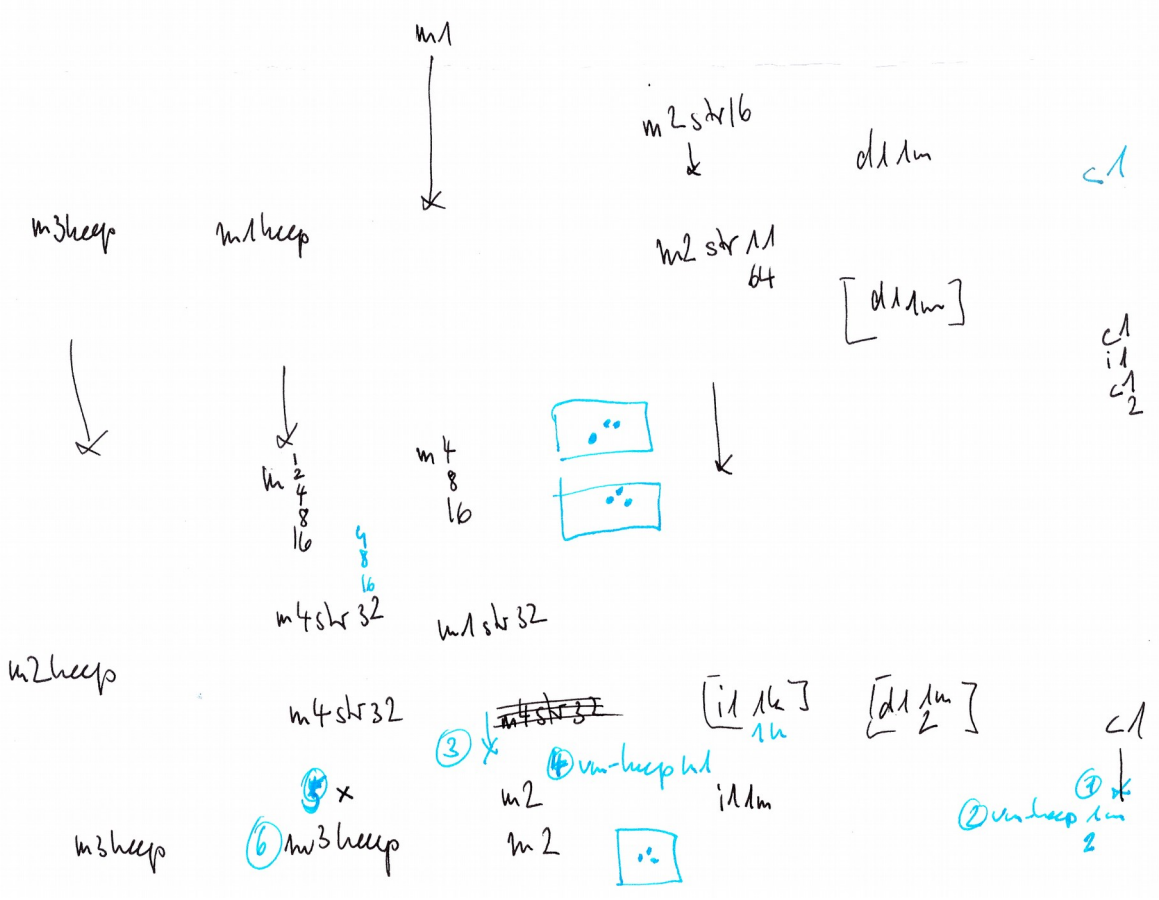 m1
m2str16
d11m
c1
m3heep
m1heep
m2str11
64
[d11m]
c1
i1
c1
2
m 1
2
4
8
16
m4
8
16
4
8
16
m4str32
m1str32
m2heep
m4str32
m4str32
[i1 1k]
1k
[d1 1m]
2
c1
3
4 vm-heep k1
1
x
m2
i11m
2 vm-heep 1m
2
m3heep
6 m3heep
m2